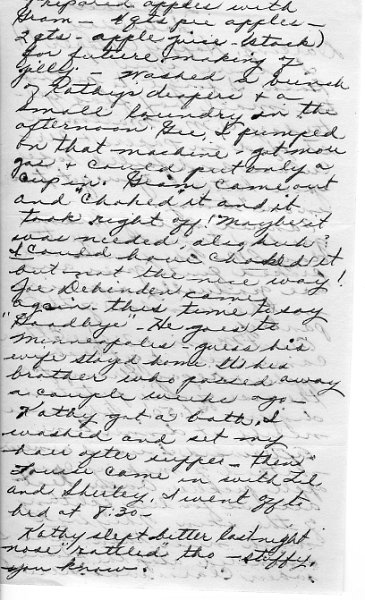 Prepared apples with
Gram - 4 qts pie apples -
2 qts - apple juice - stock)
for future making of
jelly - Washed a bunch
of Kathy's diapers & a
small laundry in the
afternoon. Gee, I pumped
on that machine - got more
gas & could put only a
cup in. Gram came out
and "choked it" and it
took right off! Maybe it
was needed, also, huh?
I could have choked it
but not the nice way!
Joe came
again this time to say
"Goodbye" - He goes to
Minneapolis - guess his
wife stay'd home. It's his
brother who passed away
a couple weeks ago -
Kathy got a bath, I
washed and set my
hair after supper - then
came in with Lil
and Shirley. I went off to
bed at 9:30 -
Kathy slept better last night
nose "rattled" tho - stuffy,
you know.